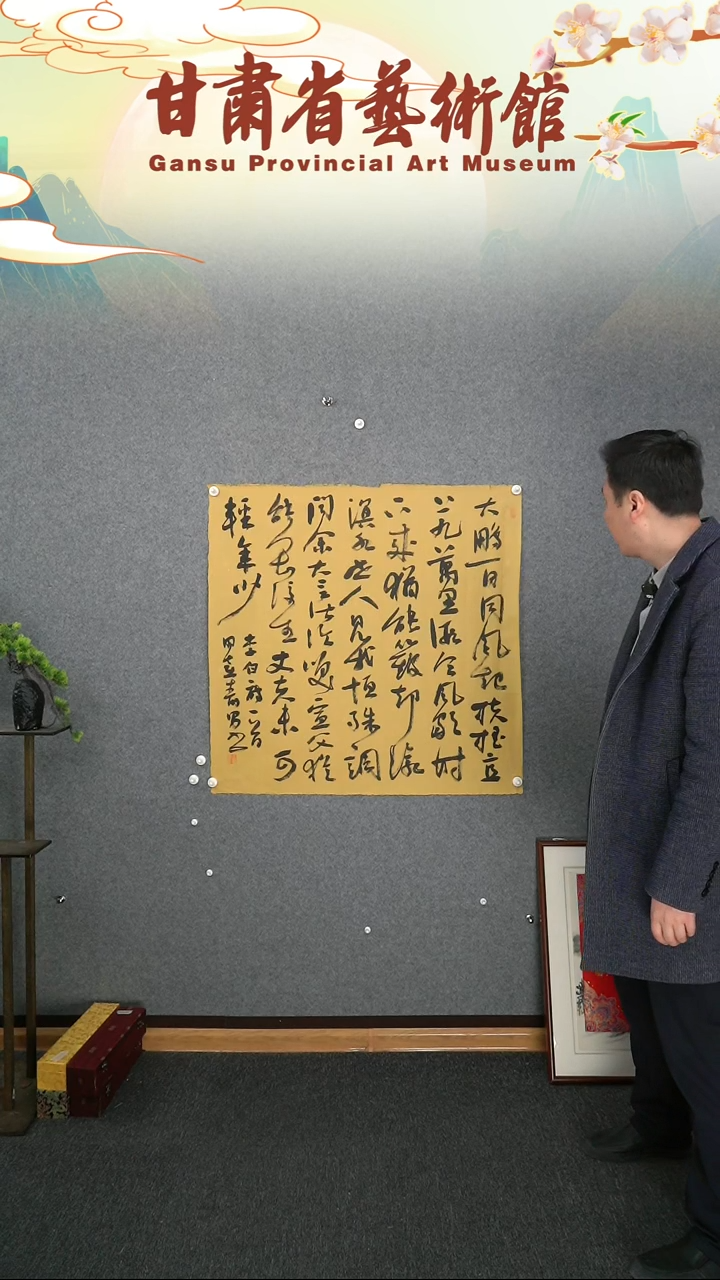 甘肅省藝術館
Gansu Provincial Art Museum
大鵬一日同風起扶搖直
上九萬里假令風歇時
下來猶能簸却滄
溟水世人見我恒殊調
聞余大言皆冷笑宣父猶
能畏後生丈夫未可
輕年少
李白詩一首